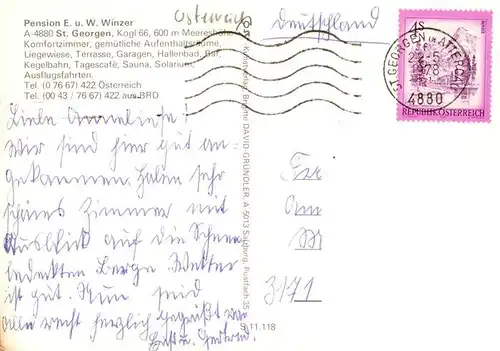 Pension E. u. W. Winzer
A-4880 St. Georgen, Kogl 66, 600 m Meereshöhe
Komfortzimmer, gemütliche Aufenthaltsräume,
Liegewiese, Terrasse, Garagen, Hallenbad, Bar,
Kegelbahn, Tagescafé, Sauna, Solarium,
Ausflugsfahrten.
Tel. (0 76 67) 422 Österreich
Tel. (00 43 / 76 67) 422 aus BRD
Österreich
Deutschland
4S
REPUBLIK ÖSTERREICH
ST. GEORGEN IM ATTERGAU
1978
4880
Brigitte DAVID-GRÜNDLER, A-5013 Salzburg, Postfach 35
S 11.118
Liebe Annelie!
Wir sind hier gut an-
gekommen. Haben sehr
schönes Zimmer mit
Ausblick auf die Schnee
bedeckten Berge. Wetter
ist gut. Nun seid
alle recht herzlich gegrüßt von
Gertrud.
Am
3171